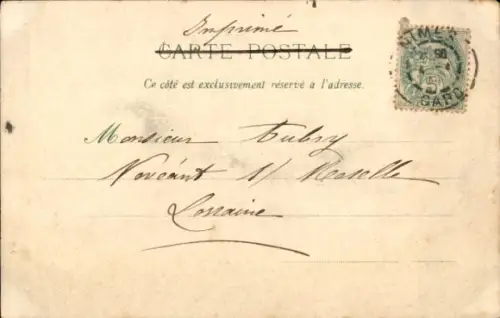 Imprimé
CARTE POSTALE
Ce côté est exclusivement réservé à l'adresse.
NIMES
GARD
Monsieur Aubry
Novéant s/ Moselle
Lorraine